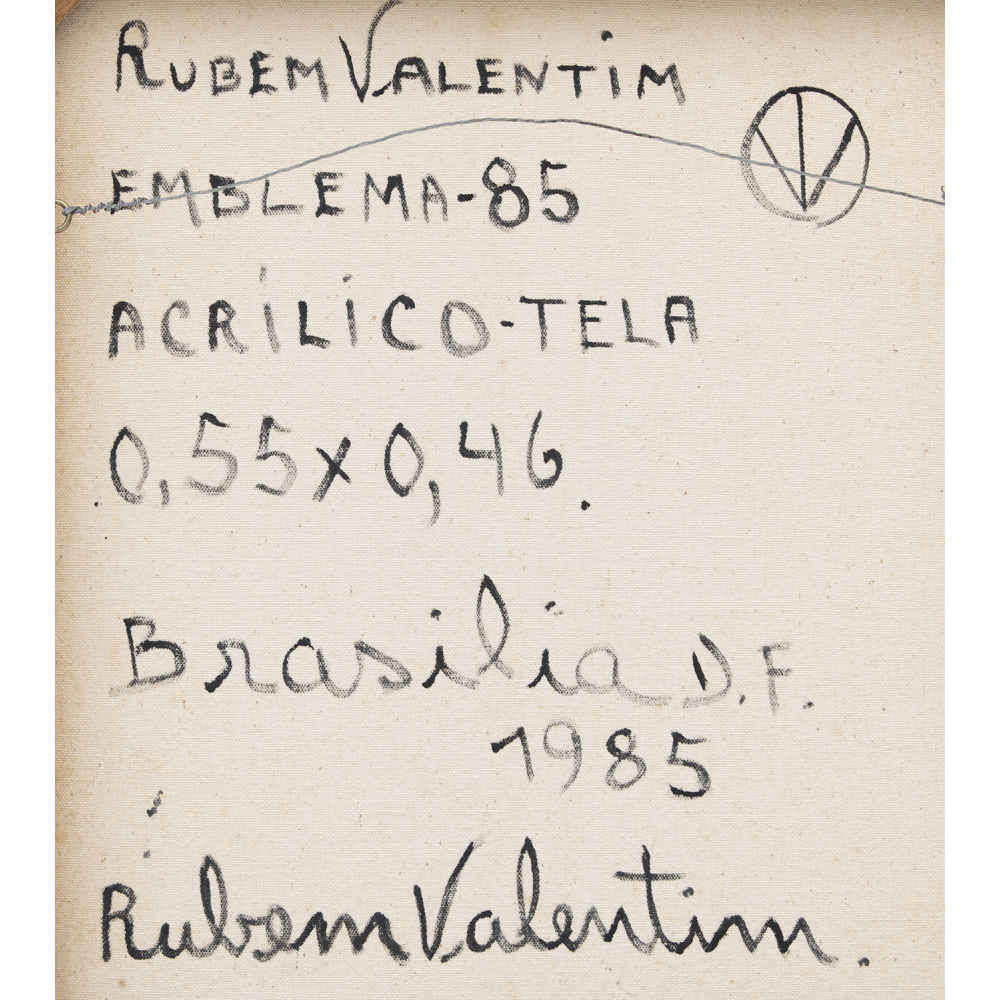 RUBEM VALENTIM
EMBLEMA-85
ACRÍLICO-TELA
0,55x0,46.
Brasilia D.F.
1985
Rubem Valentim.